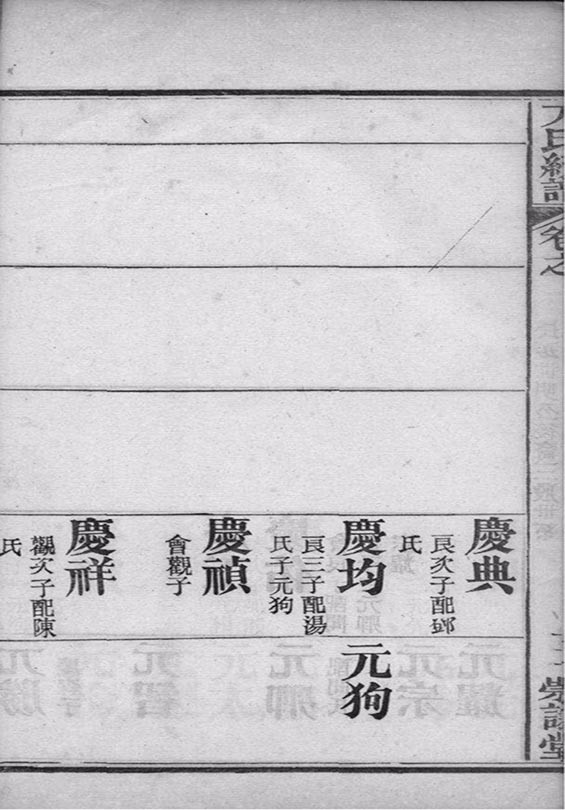 氏續譜
卷之
慶典
良次子配鄧
氏
慶均
良三子配湯
氏子元狗
元狗
慶禎
會觀子
慶祥
觀次子配陳
氏